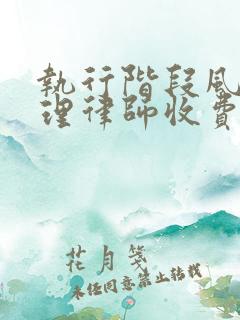 執行階段風
理律師收費
花月箋
未经同意禁止转载